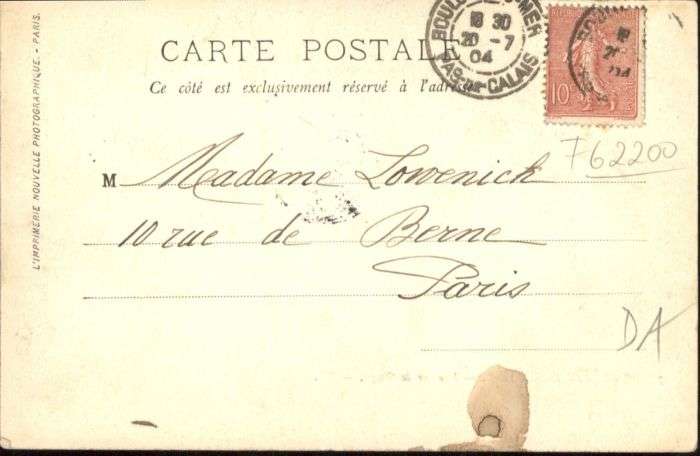 CARTE POSTALE
Ce côté est exclusivement réservé à l'adresse
BOUL NER
18 30
20 - 7
04
PAS-DE-CALAIS
10
762200
M Madame Lowenick
10 rue de Berne
Paris
DA
L'IMPRIMERIE NOUVELLE PHOTOGRAPHIQUE. - PARIS.